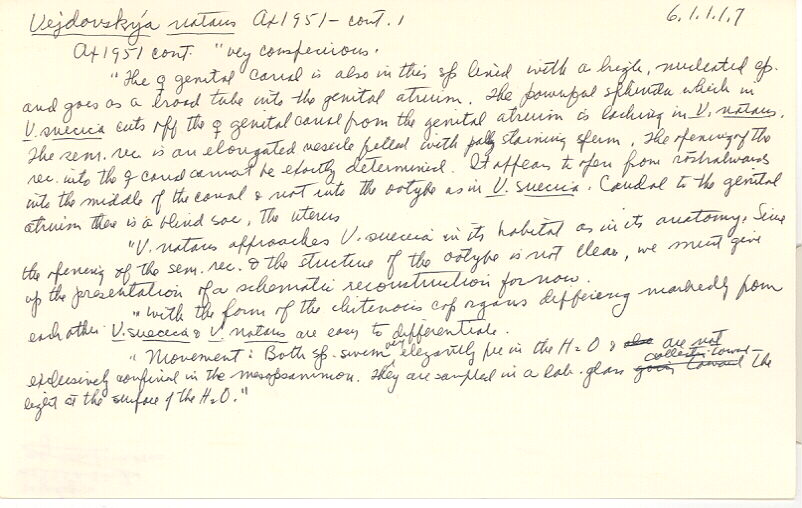 Vejdovskýa natans Ax 1951 - cont. 1
6.1.1.1.7
Ax 1951 cont. "very conspicuous.
"The ♀ genital canal is also in this sp lined with a high, nucleated ep.
and goes as a broad tube into the genital atrium. The powerful sphincter which in
V. suecica cuts off the ♀ genital canal from the genital atrium is lacking in V. natans.
The sem. rec. is an elongated vesicle filled with staining sperm. The opening of the
rec. into the ♀ canal cannot be exactly determined. It appears to open from rostralwards
into the middle of the canal & not into the ootype as in V. suecica. Caudal to the genital
atrium there is a blind sac, the uterus
"V. natans approaches V. suecica in its habitat as in its anatomy. Since
the opening of the sem. rec. & the structure of the ootype is not clear, we must give
up the presentation of a schematic reconstruction for now.
"With the form of the chitinous cop organs differing markedly from
each other V. suecica & V. natans are easy to differentiate.
"Movement: Both sp. swim very elegantly free in the H2O & also are not
exclusively confined in the mesopsammon. They are sampled in a lab. glass goes toward collecting toward the
light at the surface of the H2O."